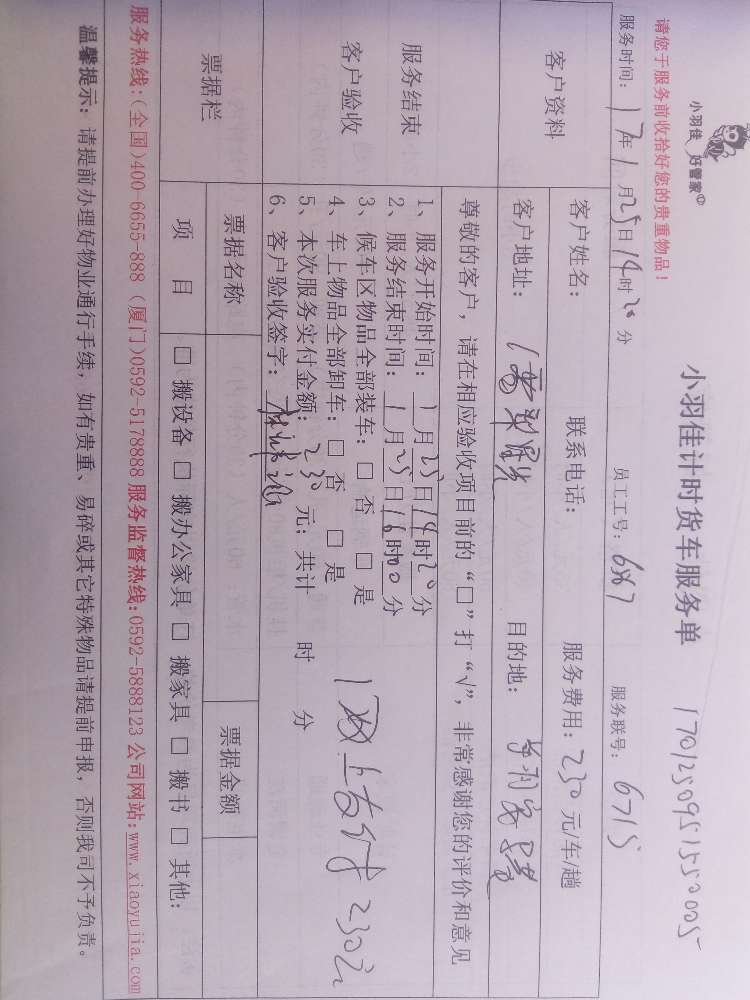 小羽佳 好管家
小羽佳计时货车服务单 1701250951550005
请您于服务前收拾好您的贵重物品！
服务时间：17年1月25日14时20分 员工工号：6867 服务联号：6715
客户资料
客户姓名： 联系电话： 服务费用：230元/车/趟
客户地址： 目的地：
尊敬的客户，请在相应验收项目前的“□”打“√”，非常感谢您的评价和意见
服务结束
客户验收
1、服务开始时间：1月25日14时20分
2、服务结束时间：1月25日16时00分
3、候车区物品全部装车：□ 否 □ 是
4、车上物品全部卸车：□ 否 □ 是
5、本次服务实付金额：230元；共计 时 分
6、客户验收签字：
上支付 230元
票据栏
票据名称 票据金额
项 目 □ 搬设备 □ 搬办公家具 □ 搬家具 □ 搬书 □ 其他：
服务热线：(全国)400-6655-888 (厦门)0592-5178888 服务监督热线:0592-5888123 公司网站:www.xiaoyujia.com
温馨提示：请提前办理好物业通行手续，如有贵重、易碎或其它特殊物品请提前申报，否则我司不予负责。